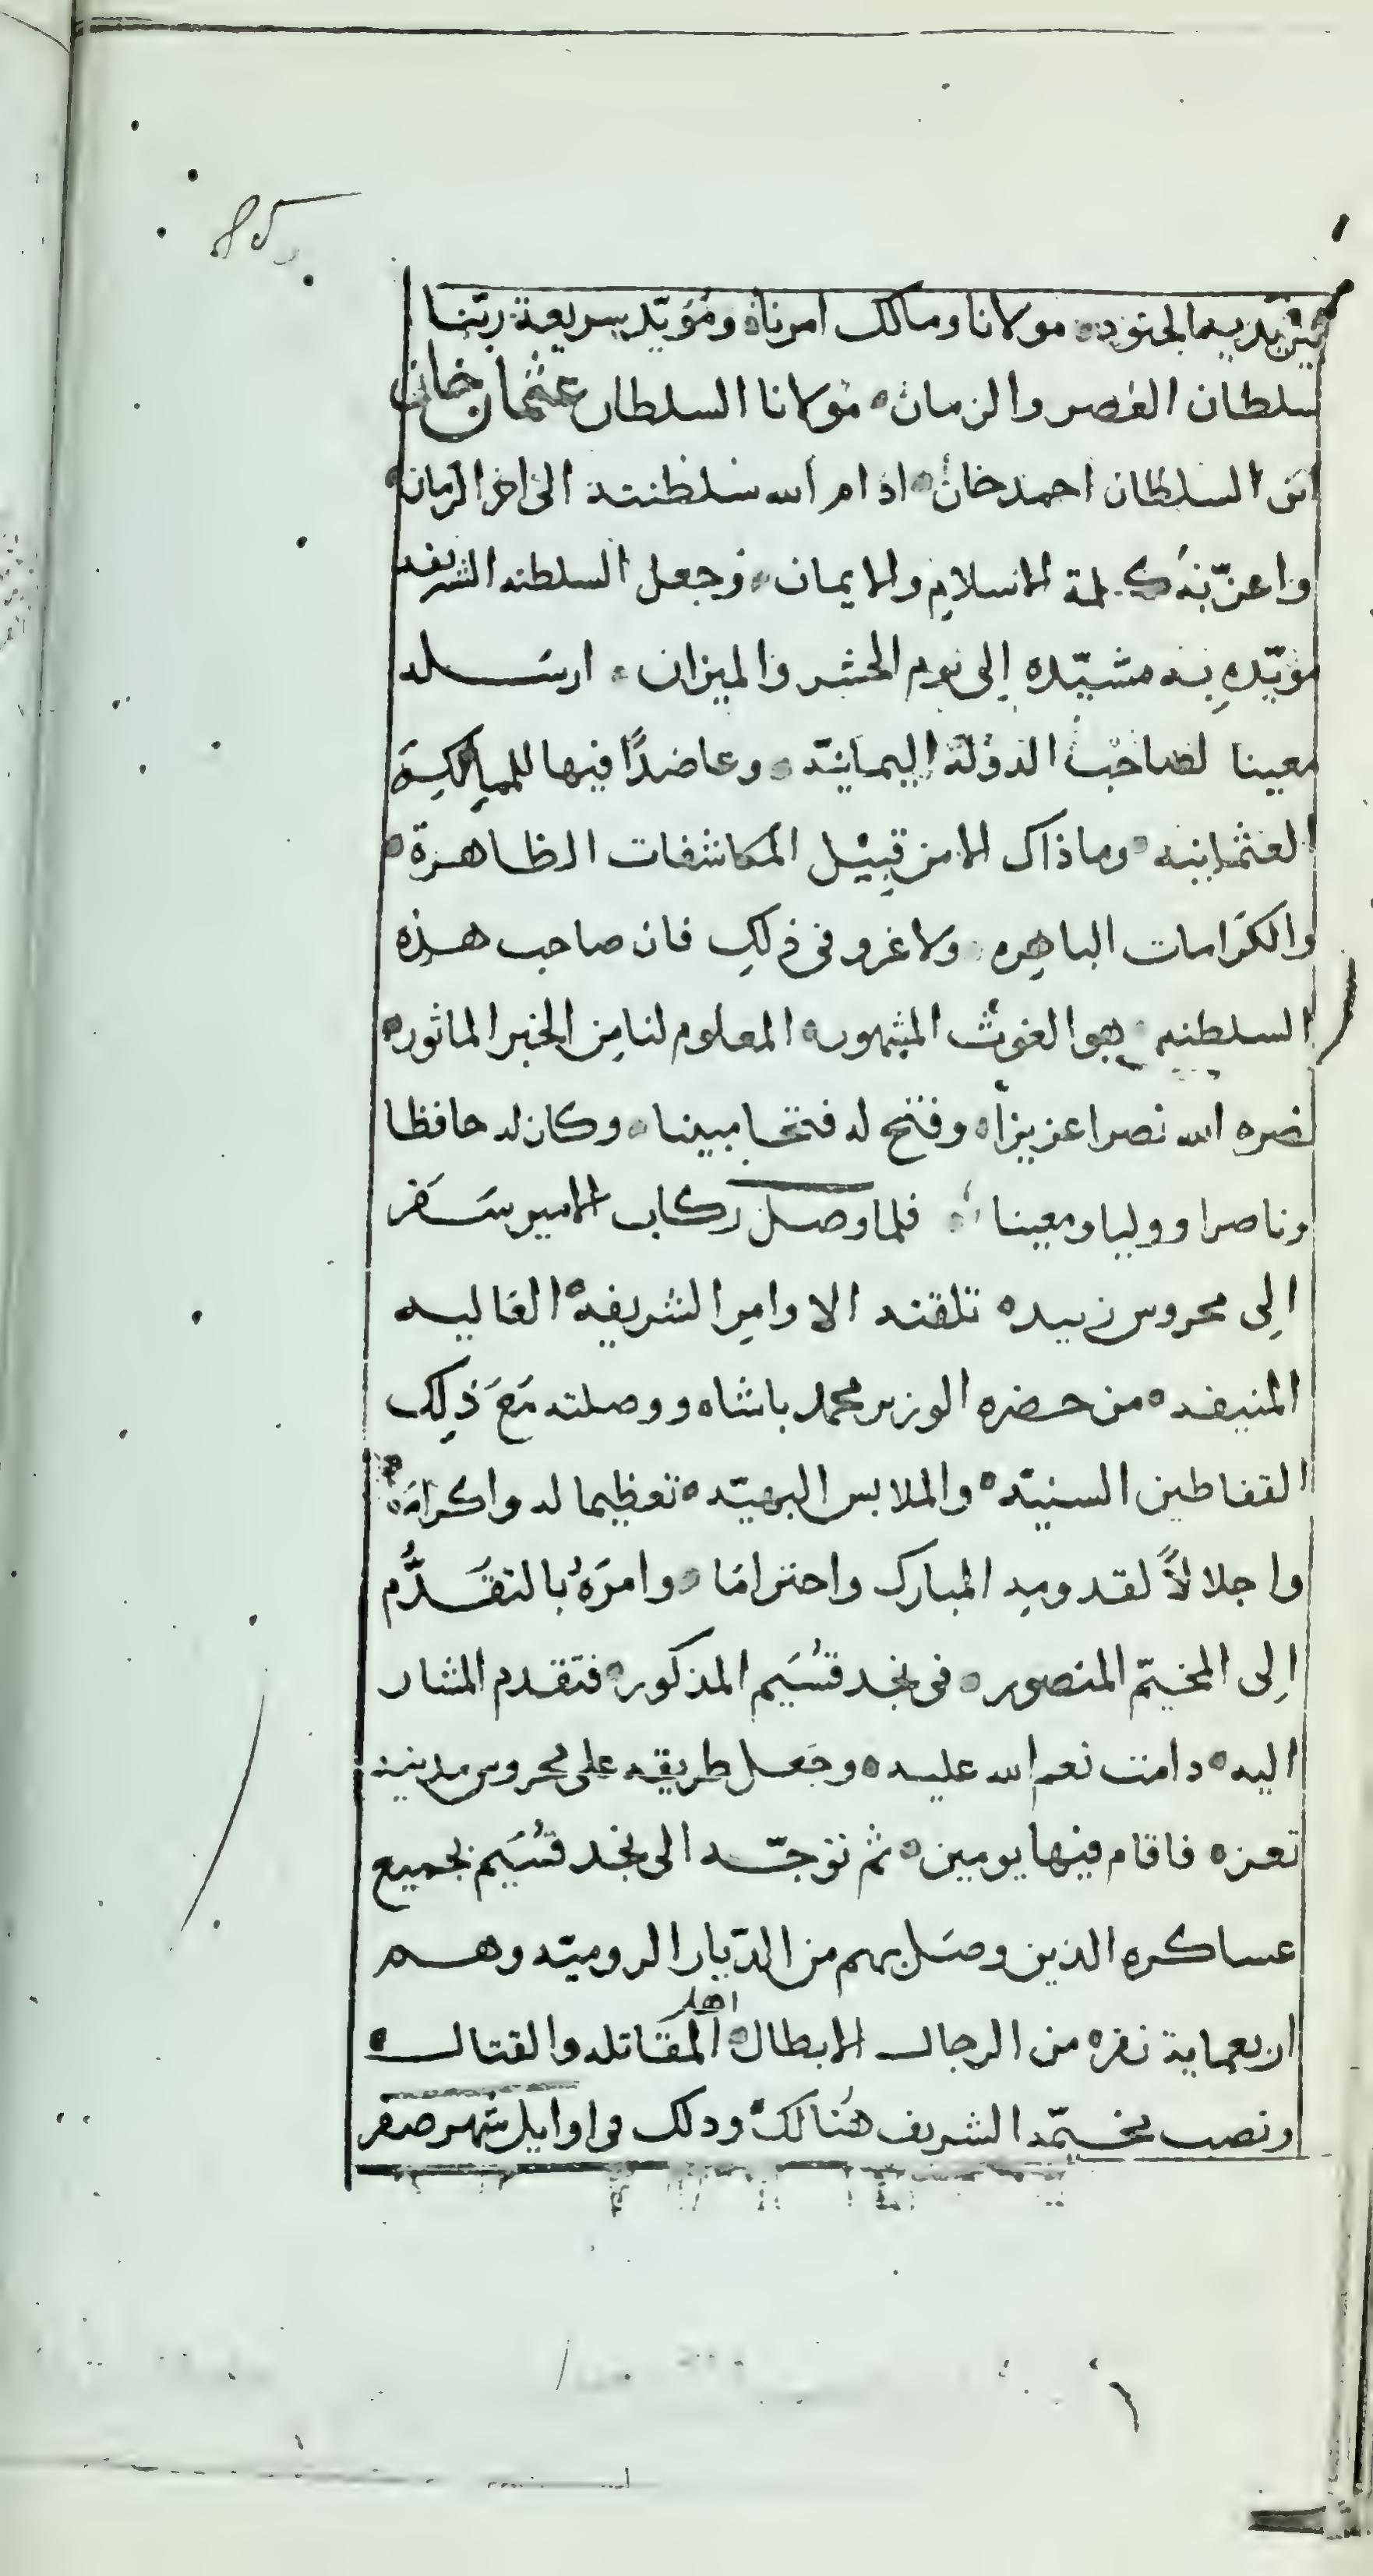 85
بهما الجنود ه مولانا ومالك امرنا ه ومؤيّد شريعة ربّنا
سلطان العصر والزمان ه مولانا السلطان عثمان خان
ابن السلطان احمد خان ه ادام الله سلطنته الى اخر الزمان ه
واعزّ به كلمة الاسلام والايمان ه وجعل السلطنه الشريفه
مؤيّده به مشيّده إلى يوم الحشر والميزان ه ارسله
معينا لصاحب الدولة اليمانيّه ه وعاضدًا فيها للممالكِ
العثمانيه ه وما ذاك الا من قبيل المكاشفات الظاهرة ه
والكرامات الباهره ه ولا غرو في ذلك فان صاحب هذه
السلطنه هو الغوث المشهور ه المعلوم لنا من الخبر الماثور ه
نصره الله نصرا عزيزا ه وفتح له فتحا مبينا ه وكان له حافظا
وناصرا ووليا ومعينا ه فلما وصل ركاب الامير سَفَر
الى محروس زبيد ه تلقته الاوامر الشريفه ه العاليه
المنيفه ه من حضره الوزير محمد باشا ه ووصلته مَعَ ذلِك
القفاطين السنيّه ه والملابس البهيّه ه تعظيما له واكراما ه
واجلالاً لقدومه المبارك واحتراما ه وامرَهُ بالتقدُّم
الِى المخيّم المنصور ه في نجد قُسَيم المذكور ه فتقدم المشار
اليه ه دامت نعم الله عليه ه وجعل طريقه على محروس مدينة
تعز ه فاقام فيها يومين ه ثم توجّه الى نجد قُسَيم بجميع
عساكره الذين وصَل بهم من الدّيار الروميّه وهم
اربعماية نفر ه من الرجال الابطال ه اهل المقاتله والقتال ه
ونصب مخيّمه الشريف هُنالك ه وذلك في اوايل شهر صفر